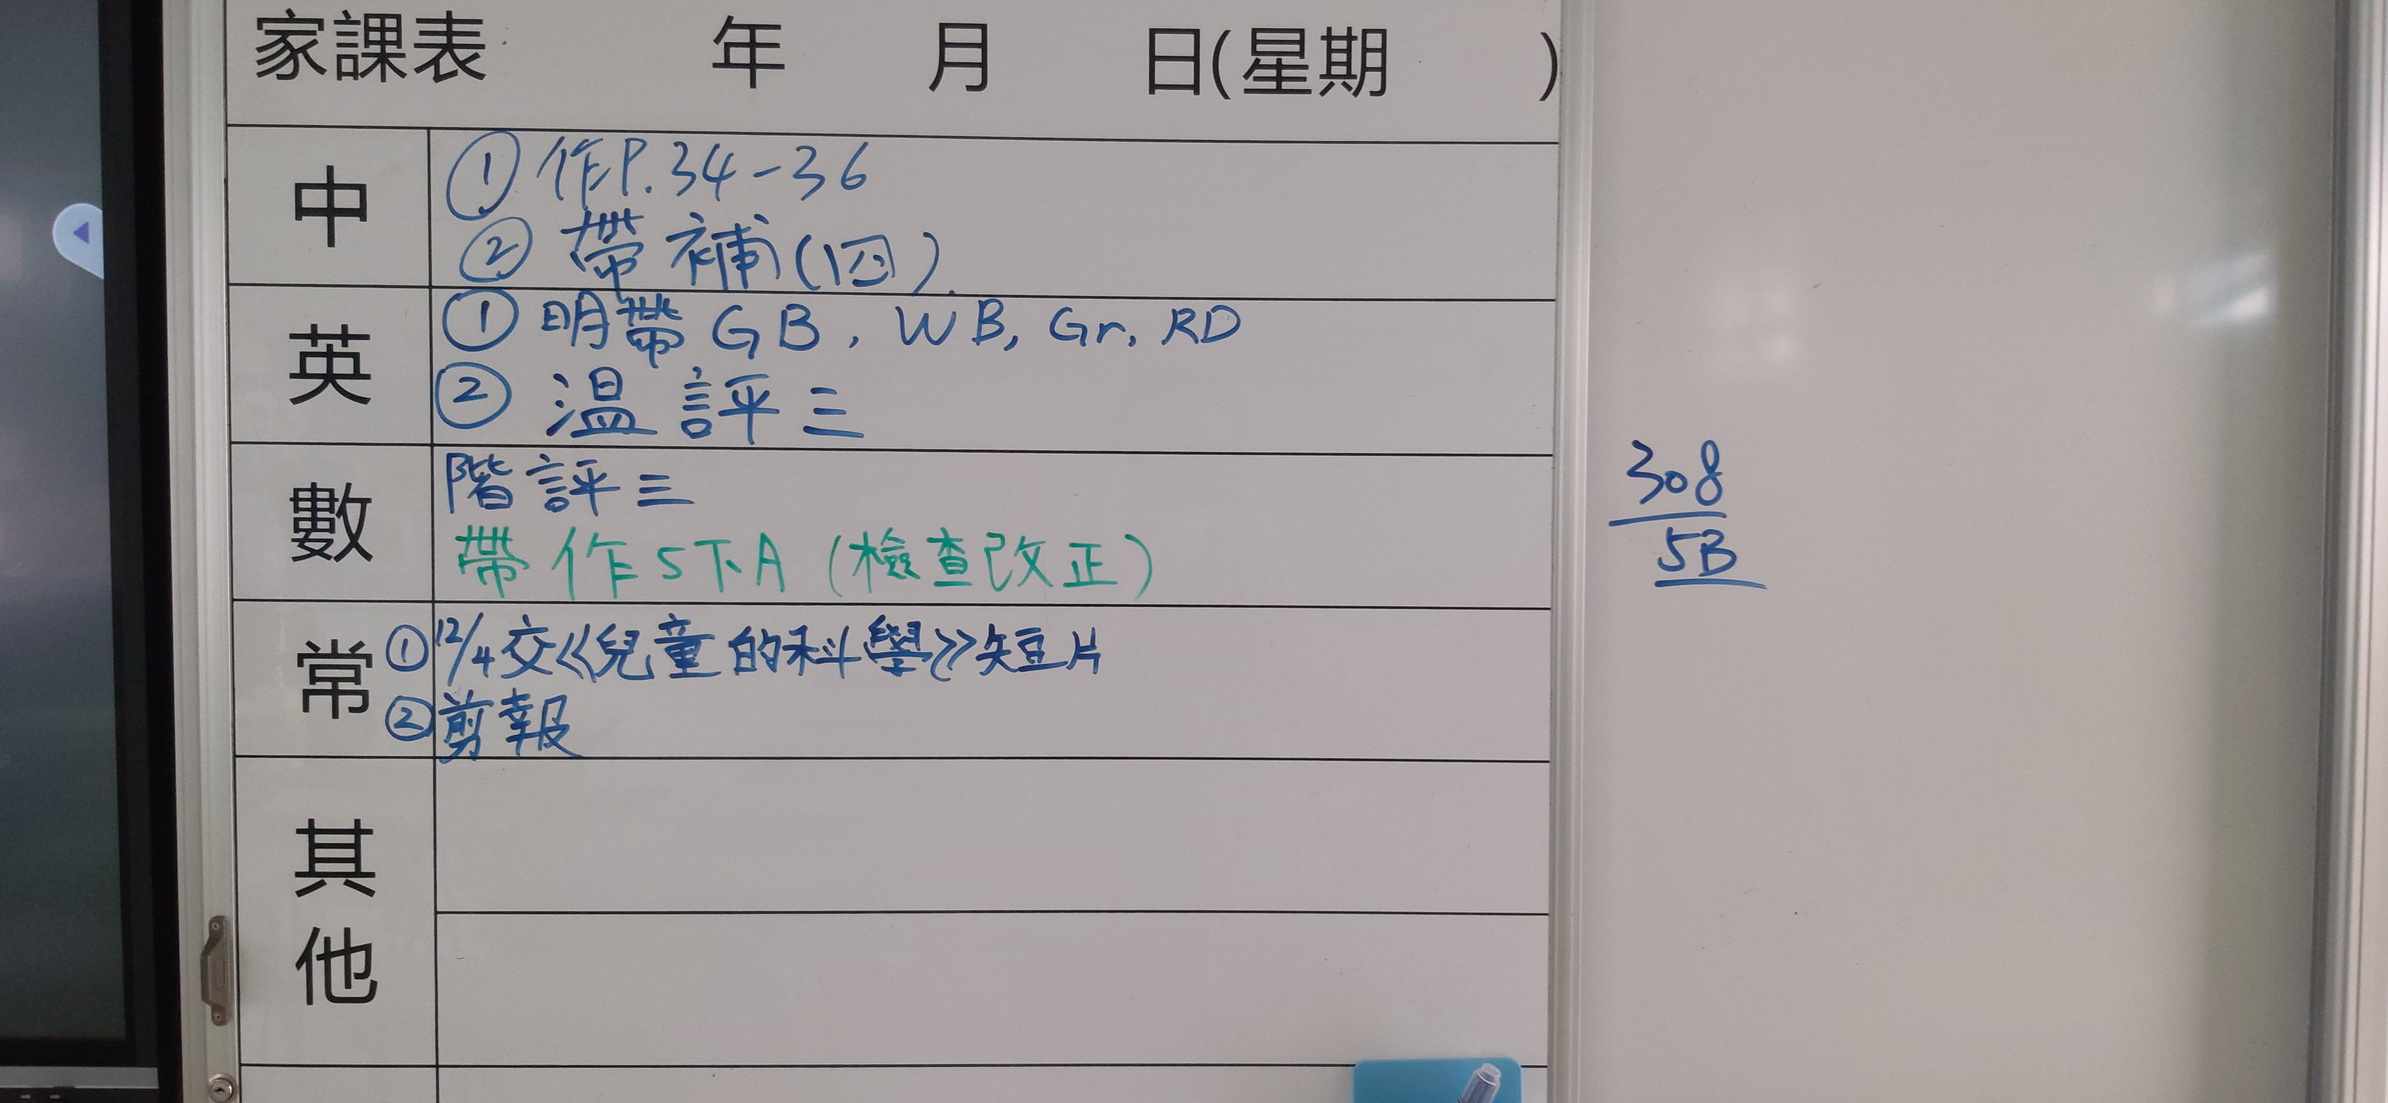 家課表 年 月 日(星期 )
中
① 作P.34-36
② 帶補(四)
英
① 明帶GB, WB, Gr, RD
② 溫評三
數
階評三
帶作5下A (檢查改正)
常
① 12/4交《兒童的科學》短片
② 剪報
其他
308
5B